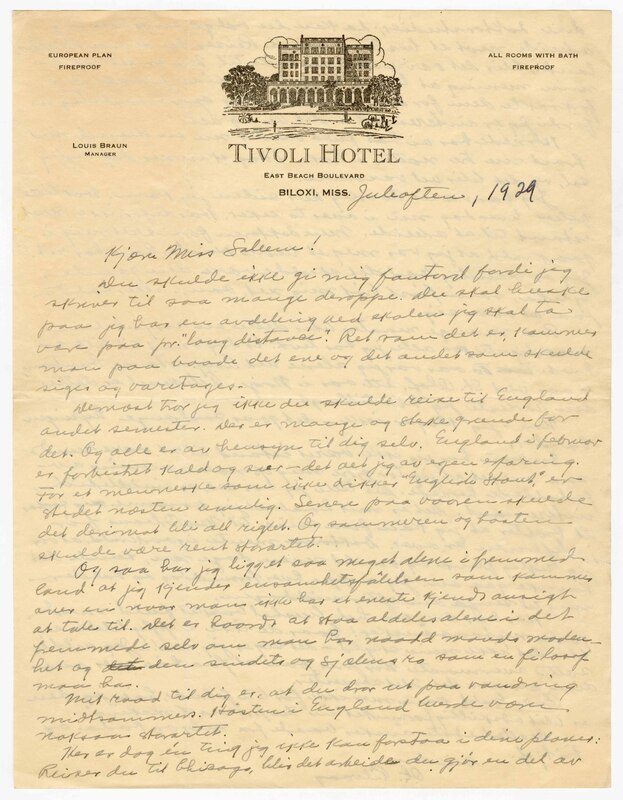 EUROPEAN PLAN
FIREPROOF
ALL ROOMS WITH BATH
FIREPROOF
LOUIS BRAUN
MANAGER
TIVOLI HOTEL
EAST BEACH BOULEVARD
BILOXI, MISS. Juleaften, 1929
Kjære Miss !
Du skulde ikke gi mig fantord fordi jeg
skriver til saa mange deroppe. Du skal huske
paa jeg har en avdeling ved skolen jeg skal ta
vare paa pr. "long distance". Ret som det er, kommer
man paa baade det ene og det andet som skulde
siges og varetages.-
Dernæst tror jeg ikke du skulde reise til England
andet semester. Der er mange og sterke grunde for
det. Og alle er av hensyn til dig selv. England i februar
er forbistret kald og - det vet jeg av egen erfaring.
For et menneske som ikke drikker "English Stout," er
stedet næsten umulig. Senere paa vaaren skulde
det derimot bli all right. Og sommeren og hösten
skulde være rent storartet.
Og saa har jeg ligget saa meget alene i fremmed
land at jeg kjender ensomhetsfölelsen som kommer
over en naar man ikke har et eneste kjendt ansigt
at tale til. Det er haardt at staa aldeles alene i det
fremmede selv om man har naadd mands moden-
het og den sindets og sjælens ro som en filosof
maa ha.
Mit raad til dig er, at du drar ut paa vandring
midtsommers. Hösten i England burde være
noksaa storartet.
Her er dog én ting jeg ikke kan forstaa i dine planer:
Reiser du til Chicago, blir det arbeide du gjör en del av